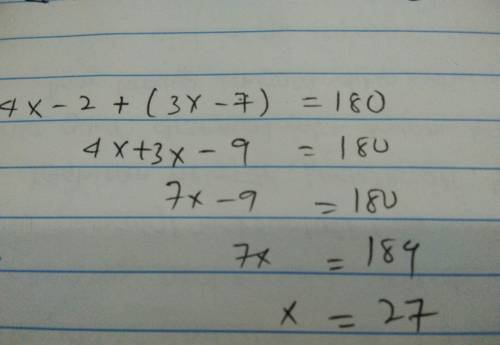 4x - 2 + (3x - 7) = 180
4x + 3x - 9 = 180
7x - 9 = 180
7x = 189
x = 27